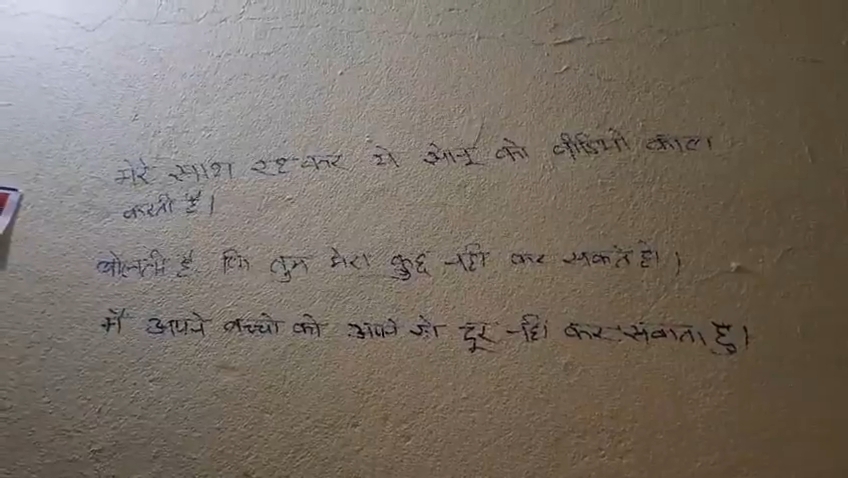 मेरे साथ रहकर ये सोनू को वीडियो काल
करती है।
बोलती है कि तुम मेरा कुछ नही कर सकते हो।
मैं अपने बच्चो को अपने से दूर नहीं कर सकता हु।